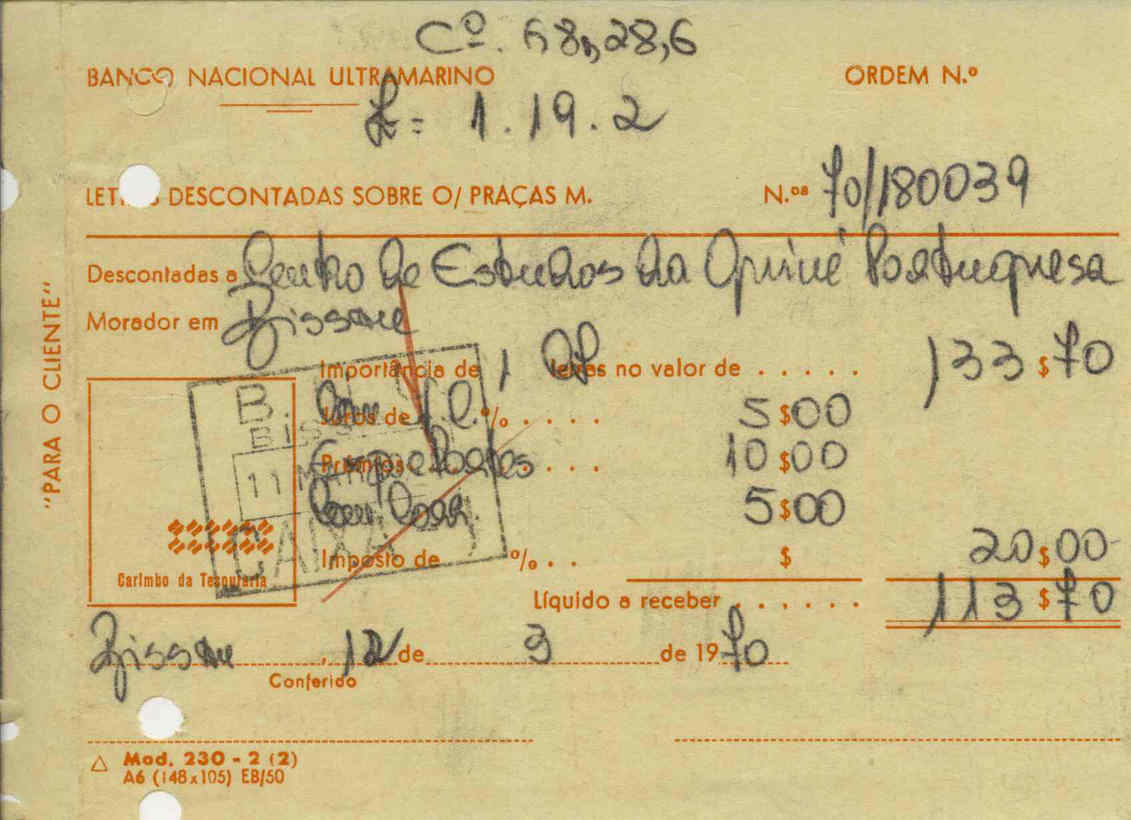 Cº. 68,28,6
BANCO NACIONAL ULTRAMARINO
ORDEM N.º
£= 1.19.2
LETRAS DESCONTADAS SOBRE O/ PRAÇAS M.
N.ºs 70/180039
Descontadas a Centro de Estudos da Guiné Portuguesa
Morador em Bissau
"PARA O CLIENTE"
Importância de 1 letras no valor de . . . . . 133$70
Juros de % . . . . 5$00
Prémios . . . . 10$00
5$00
Imposto de %. . $ 20$00
Líquido a receber . . . . . 113$70
B.
BISSAU
11
CAIXA
Carimbo da Tesouraria
Bissau, 12 de 3 de 1970
Conferido
Mod. 230 - 2 (2)
A6 (148x105) EB/50